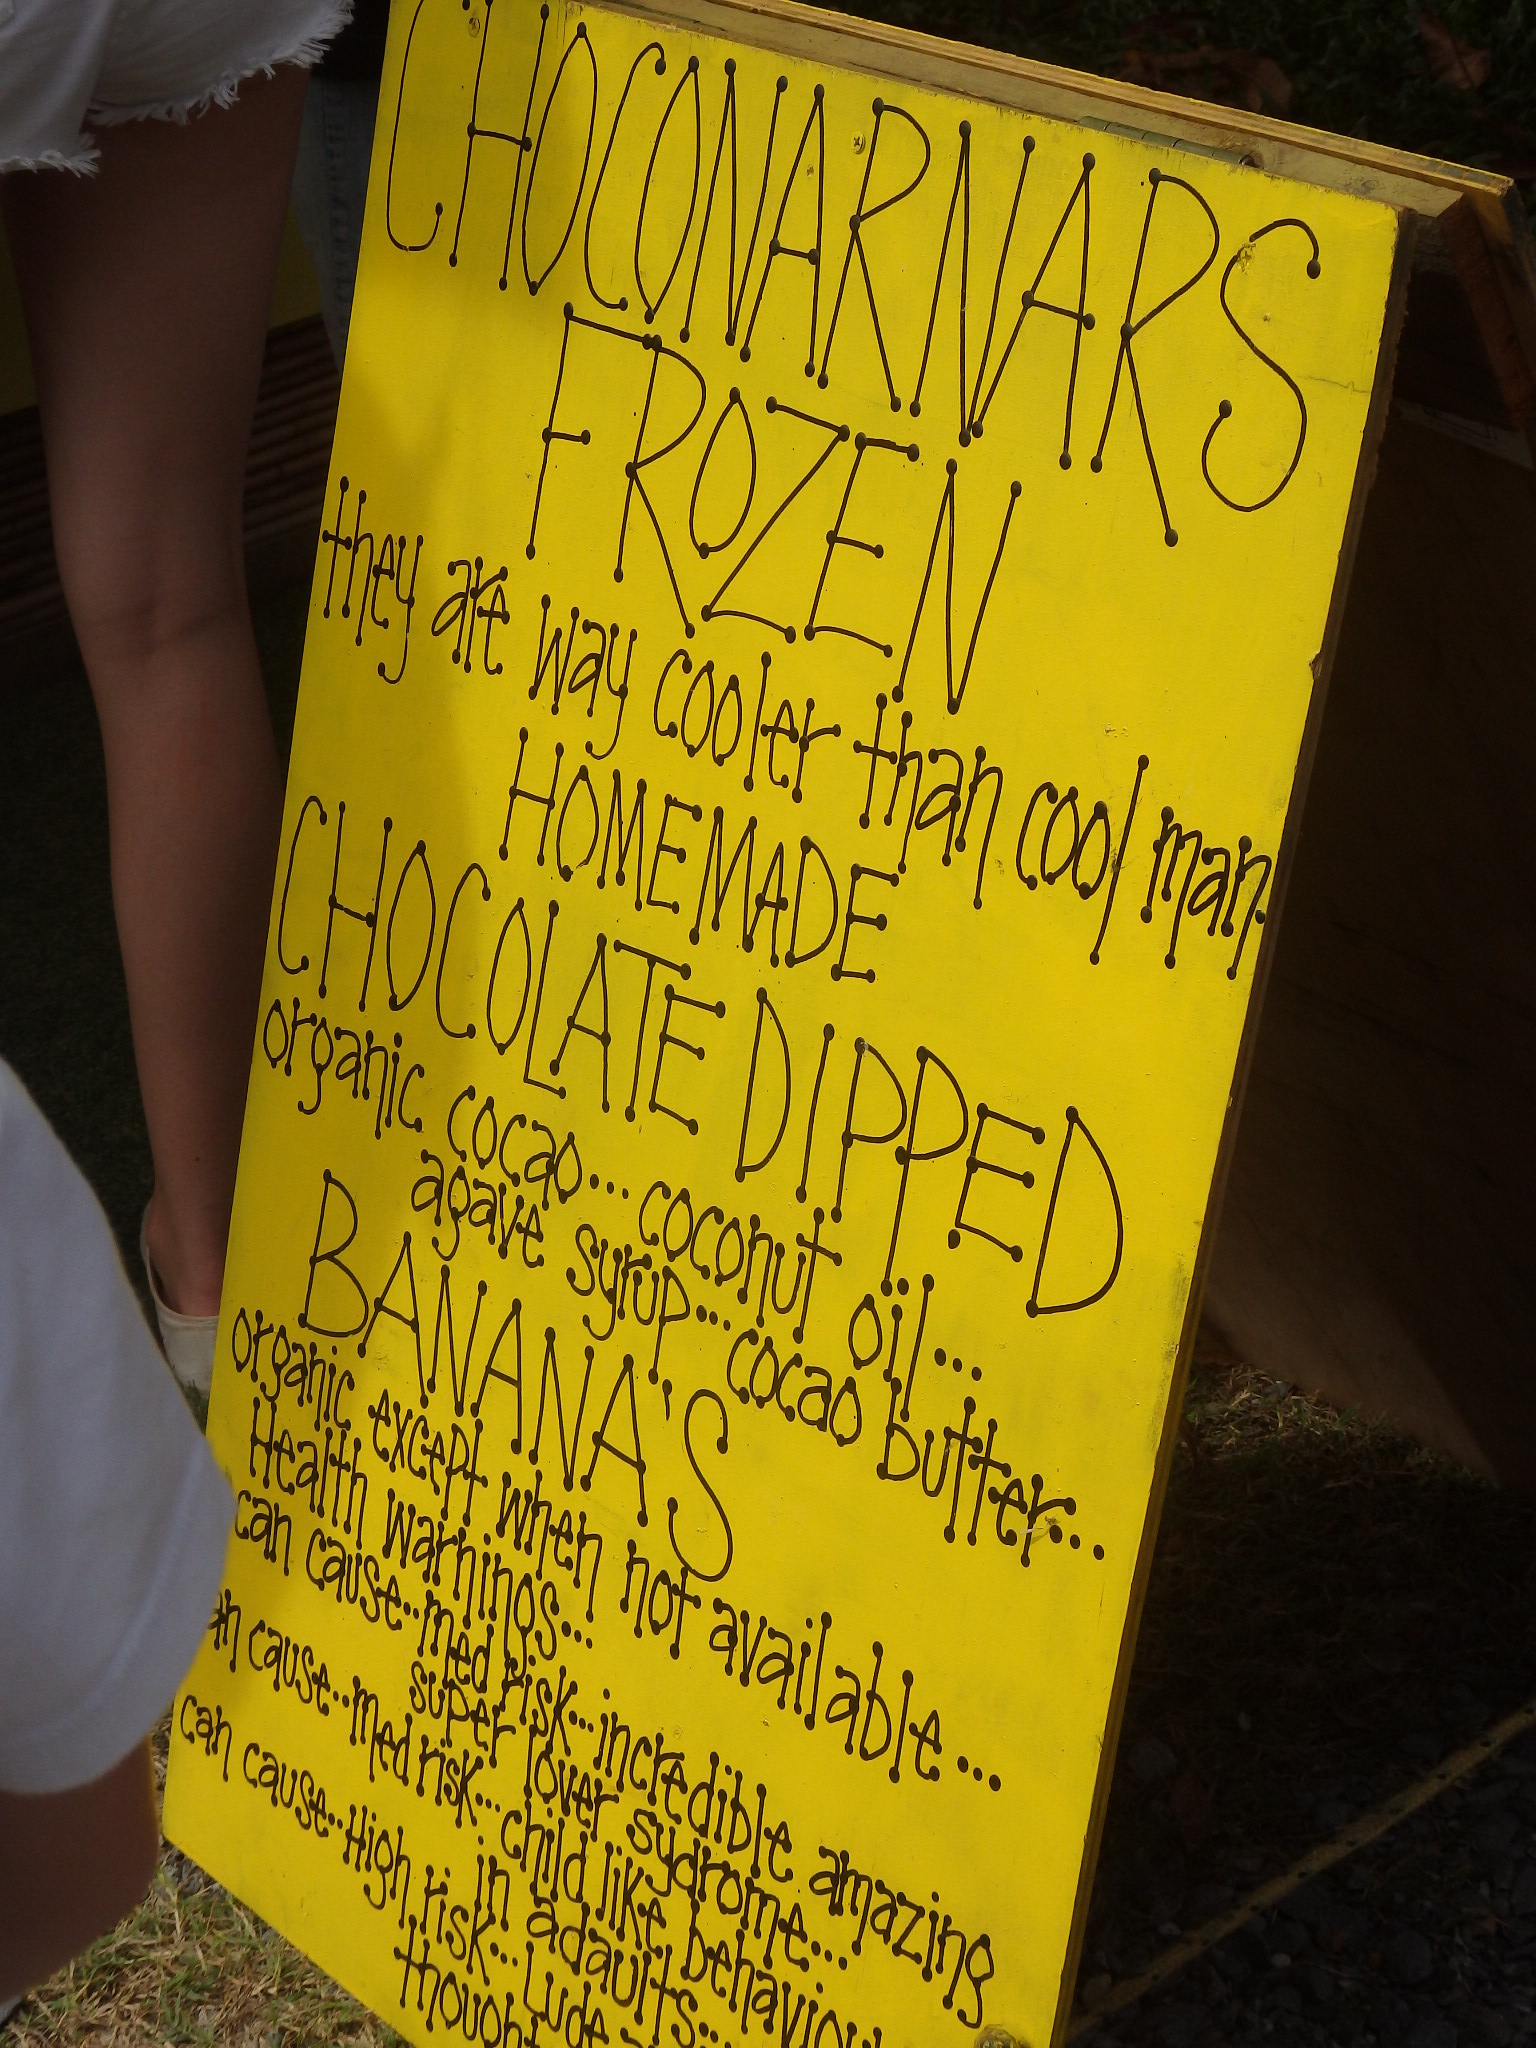 CHOCONARNARS
FROZEN
they are way cooler than cool man.
HOMEMADE
CHOCOLATE DIPPED
organic cocao... coconut oil...
agave syrup... cocao butter...
BANANA'S
organic except when not available...
Health warnings...
can cause..med risk...incredible amazing
super lover sydrome...
an cause..med risk...child like behaviou
in adaults...
can cause..High risk... Lude
thought